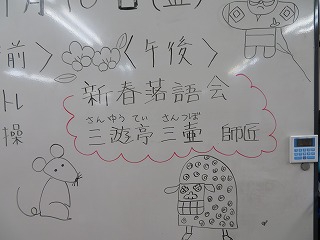 前〉 〈午後〉
新春落語会
トレ
さんゆうてい さんつぼ
操 三遊亭 三壷 師匠